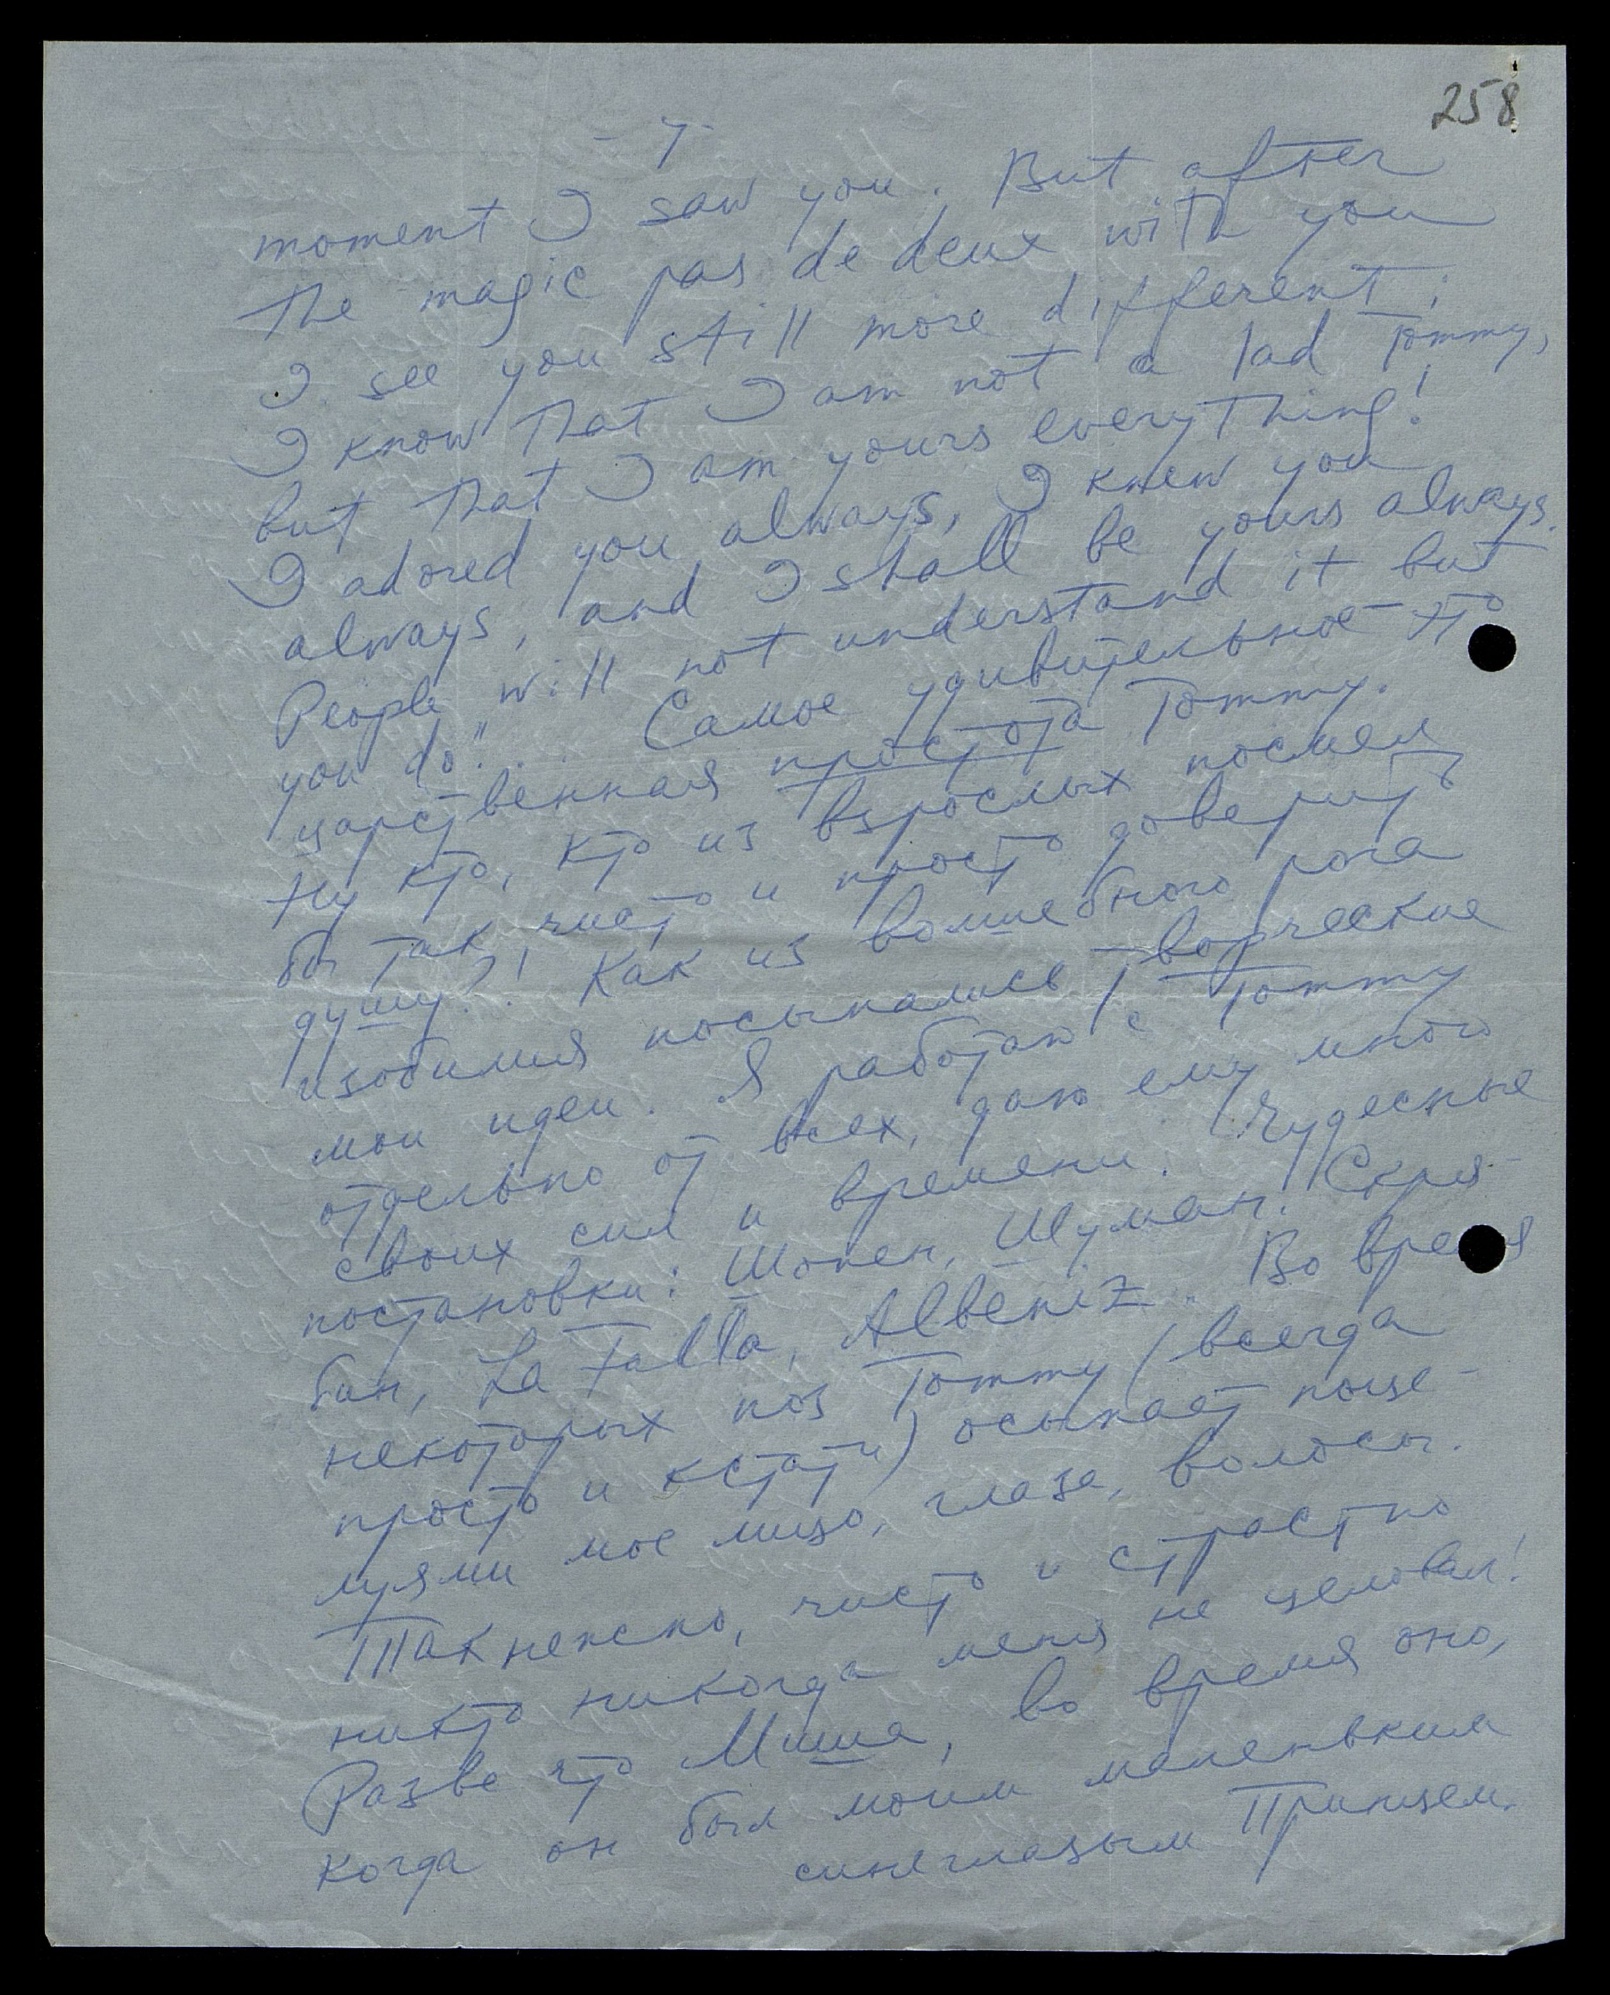 258
- 7 -
moment I saw you. But after
the magic pas de deux with you
I see you still more different;
I know that I am not a lad Tommy,
but that I am yours everything!
I adored you always, I knew you
always, and I shall be yours always.
People will not understand it but
you do"... Самое удивительное - это
царственная простота Tommy.
Ну кто, кто из взрослых посмел
бы так чисто и просто доверить
душу?! Как из волшебного рога
изобилия посыпались творческие
мои идеи. Я работаю с Tommy
отдельно от всех, даю ему много
своих сил и времени. Чудесные
постановки: Шопен, Шуман, Скря-
бин, La Falla, Albeniz. Во время
некоторых поз Tommy (всегда
просто и кстати) осыпает поце-
луями мое лицо, глаза, волосы.
Так нежно, чисто и страстно
никто никогда меня не целовал!
Разве что Миша, во время оно,
когда он был моим маленьким
синеглазым Принцем.